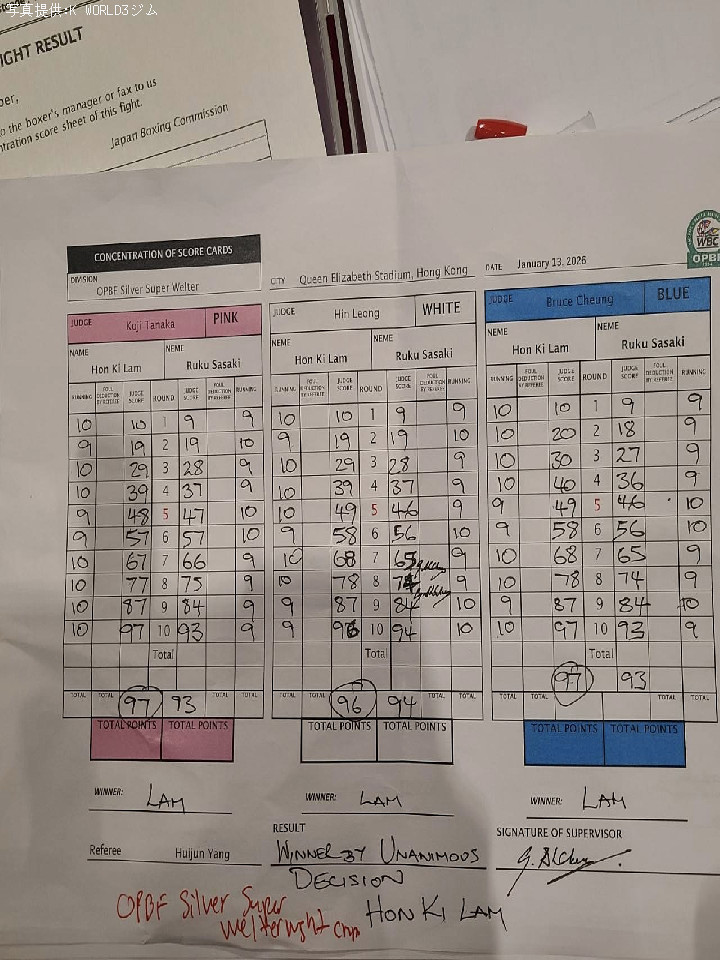 写真提供:K WORLD3ジム
IGHT RESULT
ber,
o the boxer's manager or fax to us
ntration score sheet of this fight.
Japan Boxing Commission
WBC
OPBF
CONCENTRATION OF SCORE CARDS
DIVISION OPBF Silver Super Welter
CITY Queen Elizabeth Stadium, Hong Kong
DATE January 13, 2026
JUDGE Kuji Tanaka PINK
NAME Hon Ki Lam NEME Ruku Sasaki
RUNNING FOUL DEDUCTION BY REFEREE JUDGE SCORE ROUND JUDGE SCORE FOUL DEDUCTION BY REFEREE RUNNING
10 10 1 9 9
9 19 2 19 10
10 29 3 28 9
10 39 4 37 9
9 48 5 47 10
9 57 6 57 10
10 67 7 66 9
10 77 8 75 9
10 87 9 84 9
10 97 10 93 9
Total
TOTAL TOTAL 97 93 TOTAL TOTAL
TOTAL POINTS TOTAL POINTS
WINNER: LAM
JUDGE Hin Leong WHITE
NEME Hon Ki Lam NEME Ruku Sasaki
RUNNING FOUL DEDUCTION BY REFEREE JUDGE SCORE ROUND JUDGE SCORE FOUL DEDUCTION BY REFEREE RUNNING
10 10 1 9 9
9 19 2 19 10
10 29 3 28 9
10 39 4 37 9
10 49 5 46 9
9 58 6 56 10
10 68 7 65 9
10 78 8 74 9
9 87 9 84 10
9 96 10 94 10
Total
TOTAL TOTAL 96 94 TOTAL TOTAL
TOTAL POINTS TOTAL POINTS
WINNER: LAM
JUDGE Bruce Cheung BLUE
NEME Hon Ki Lam NEME Ruku Sasaki
RUNNING FOUL DEDUCTION BY REFEREE JUDGE SCORE ROUND JUDGE SCORE FOUL DEDUCTION BY REFEREE RUNNING
10 10 1 9 9
10 20 2 18 9
10 30 3 27 9
10 40 4 36 9
9 49 5 46 10
9 58 6 56 10
10 68 7 65 9
10 78 8 74 9
9 87 9 84 10
10 97 10 93 9
Total
97 93
TOTAL TOTAL TOTAL TOTAL
TOTAL POINTS TOTAL POINTS
WINNER: LAM
Referee Huijun Yang
RESULT
WINNER BY UNANIMOUS
DECISION
HON KI LAM
SIGNATURE OF SUPERVISOR
OPBF Silver Super